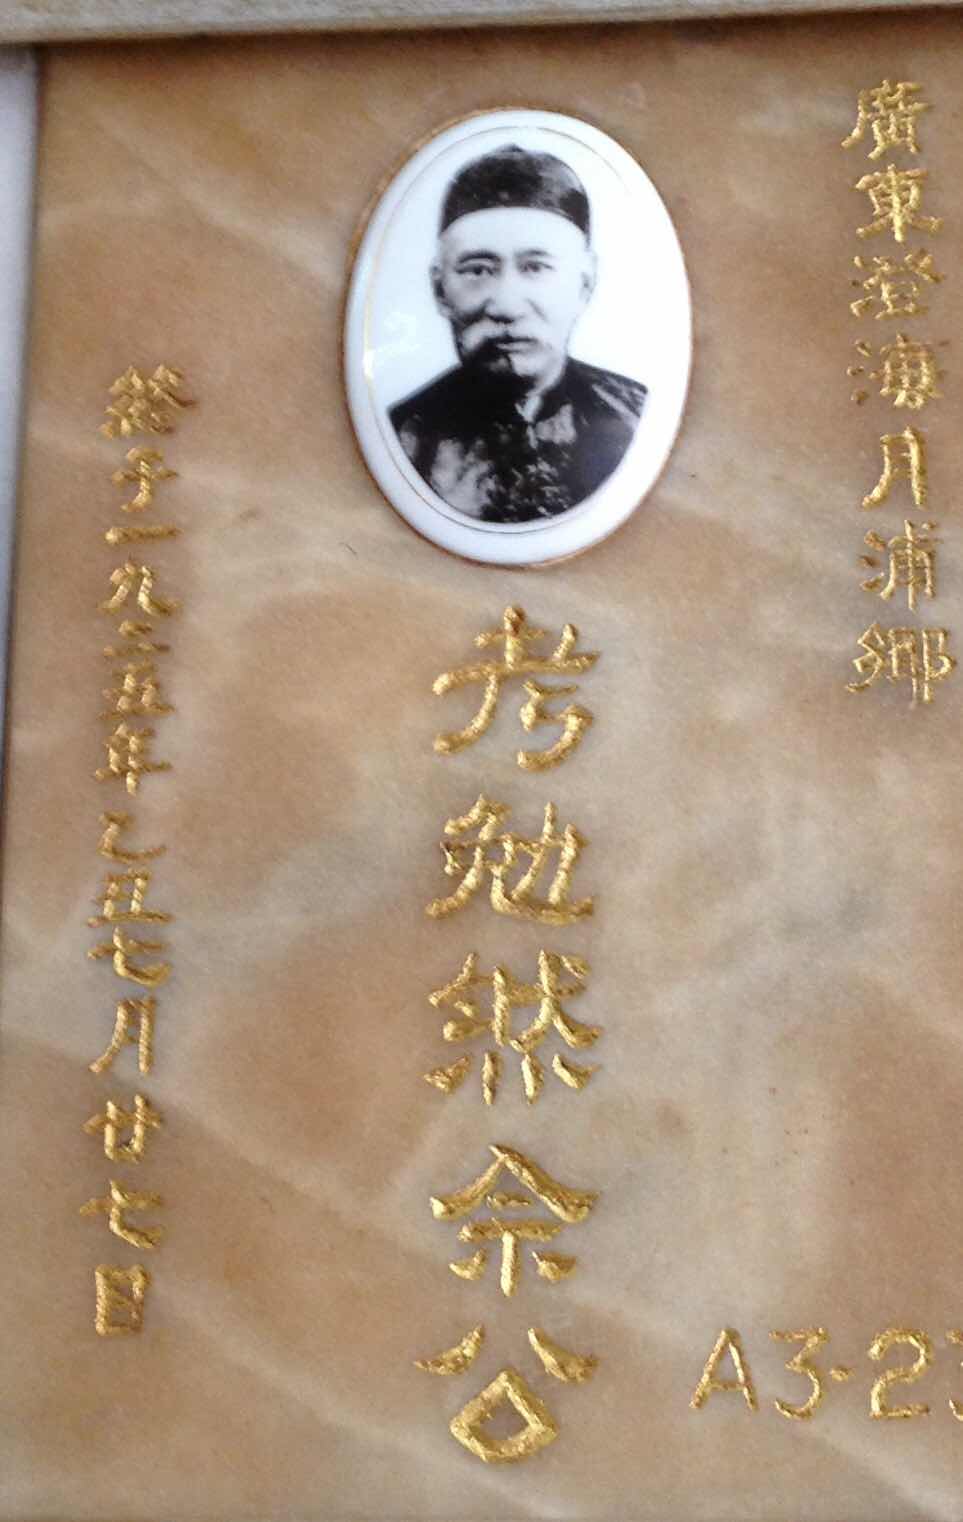 廣東澄海月浦鄉
考勉然佘公
終于一九二五年乙丑七月廿七日
A3-23